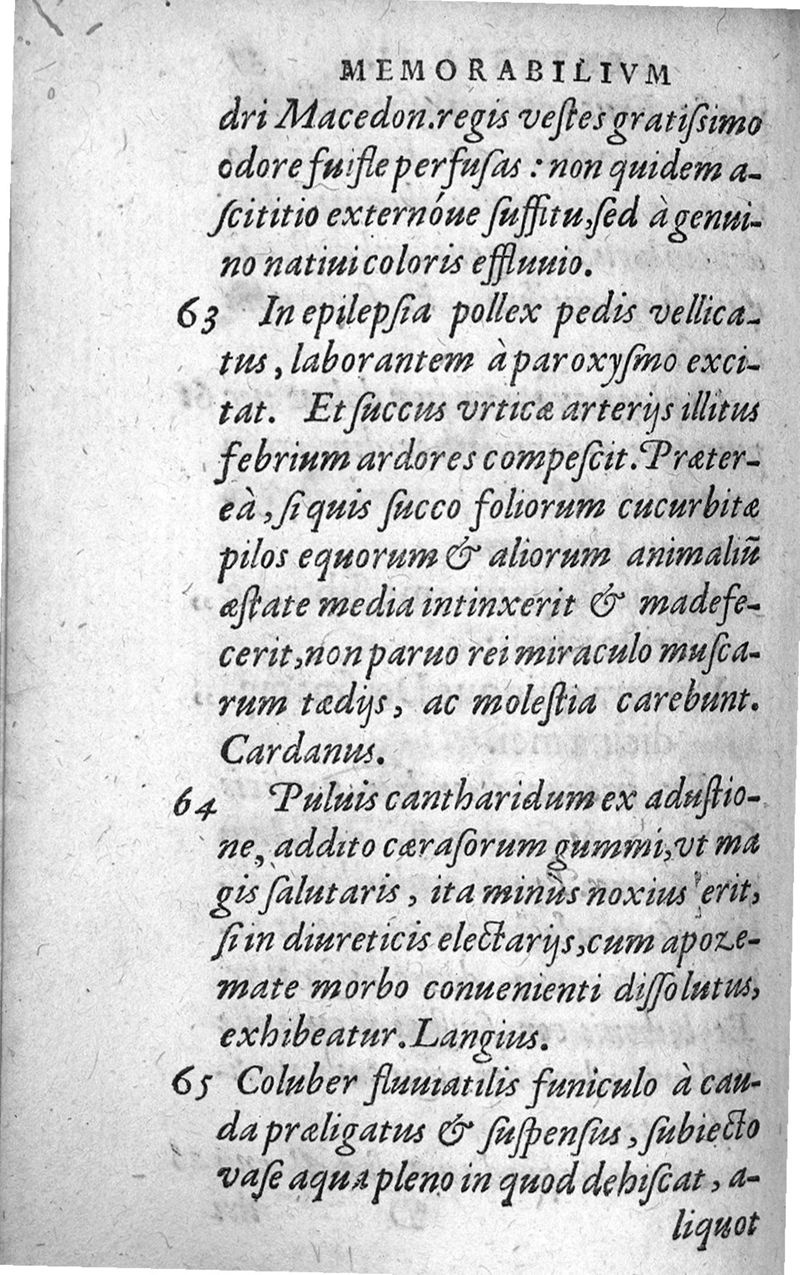 MEMORABILIVM
dri Macedon.regis veſtes gratiſsimo
odore fuiſſe perfuſas : non quidem a-
ſcititio externóue ſuffitu,ſed à genui-
no natiui coloris effluuio.
63 In epilepſia pollex pedis vellica-
tus, laborantem à paroxyſmo exci-
tat. Et ſuccus vrticæ arterijs illitus
febrium ardores compeſcit. Præter-
eà, ſi quis ſucco foliorum cucurbitæ
pilos equorum & aliorum animaliũ
æſtate media intinxerit & madefe-
cerit,non paruo rei miraculo muſca-
rum tædijs, ac moleſtia carebunt.
Cardanus.
64 Puluis cantharidum ex aduſtio-
ne, addito cæraſorum gummi,vt ma
gis ſalutaris, ita minùs noxius erit,
ſi in diureticis electarijs,cum apoze-
mate morbo conuenienti diſſolutus,
exhibeatur. Langius.
65 Coluber fluuiatilis funiculo à cau-
da præligatus & ſuſpenſus, ſubiecto
vaſe aqua pleno in quod dehiſcat, a-
liquot